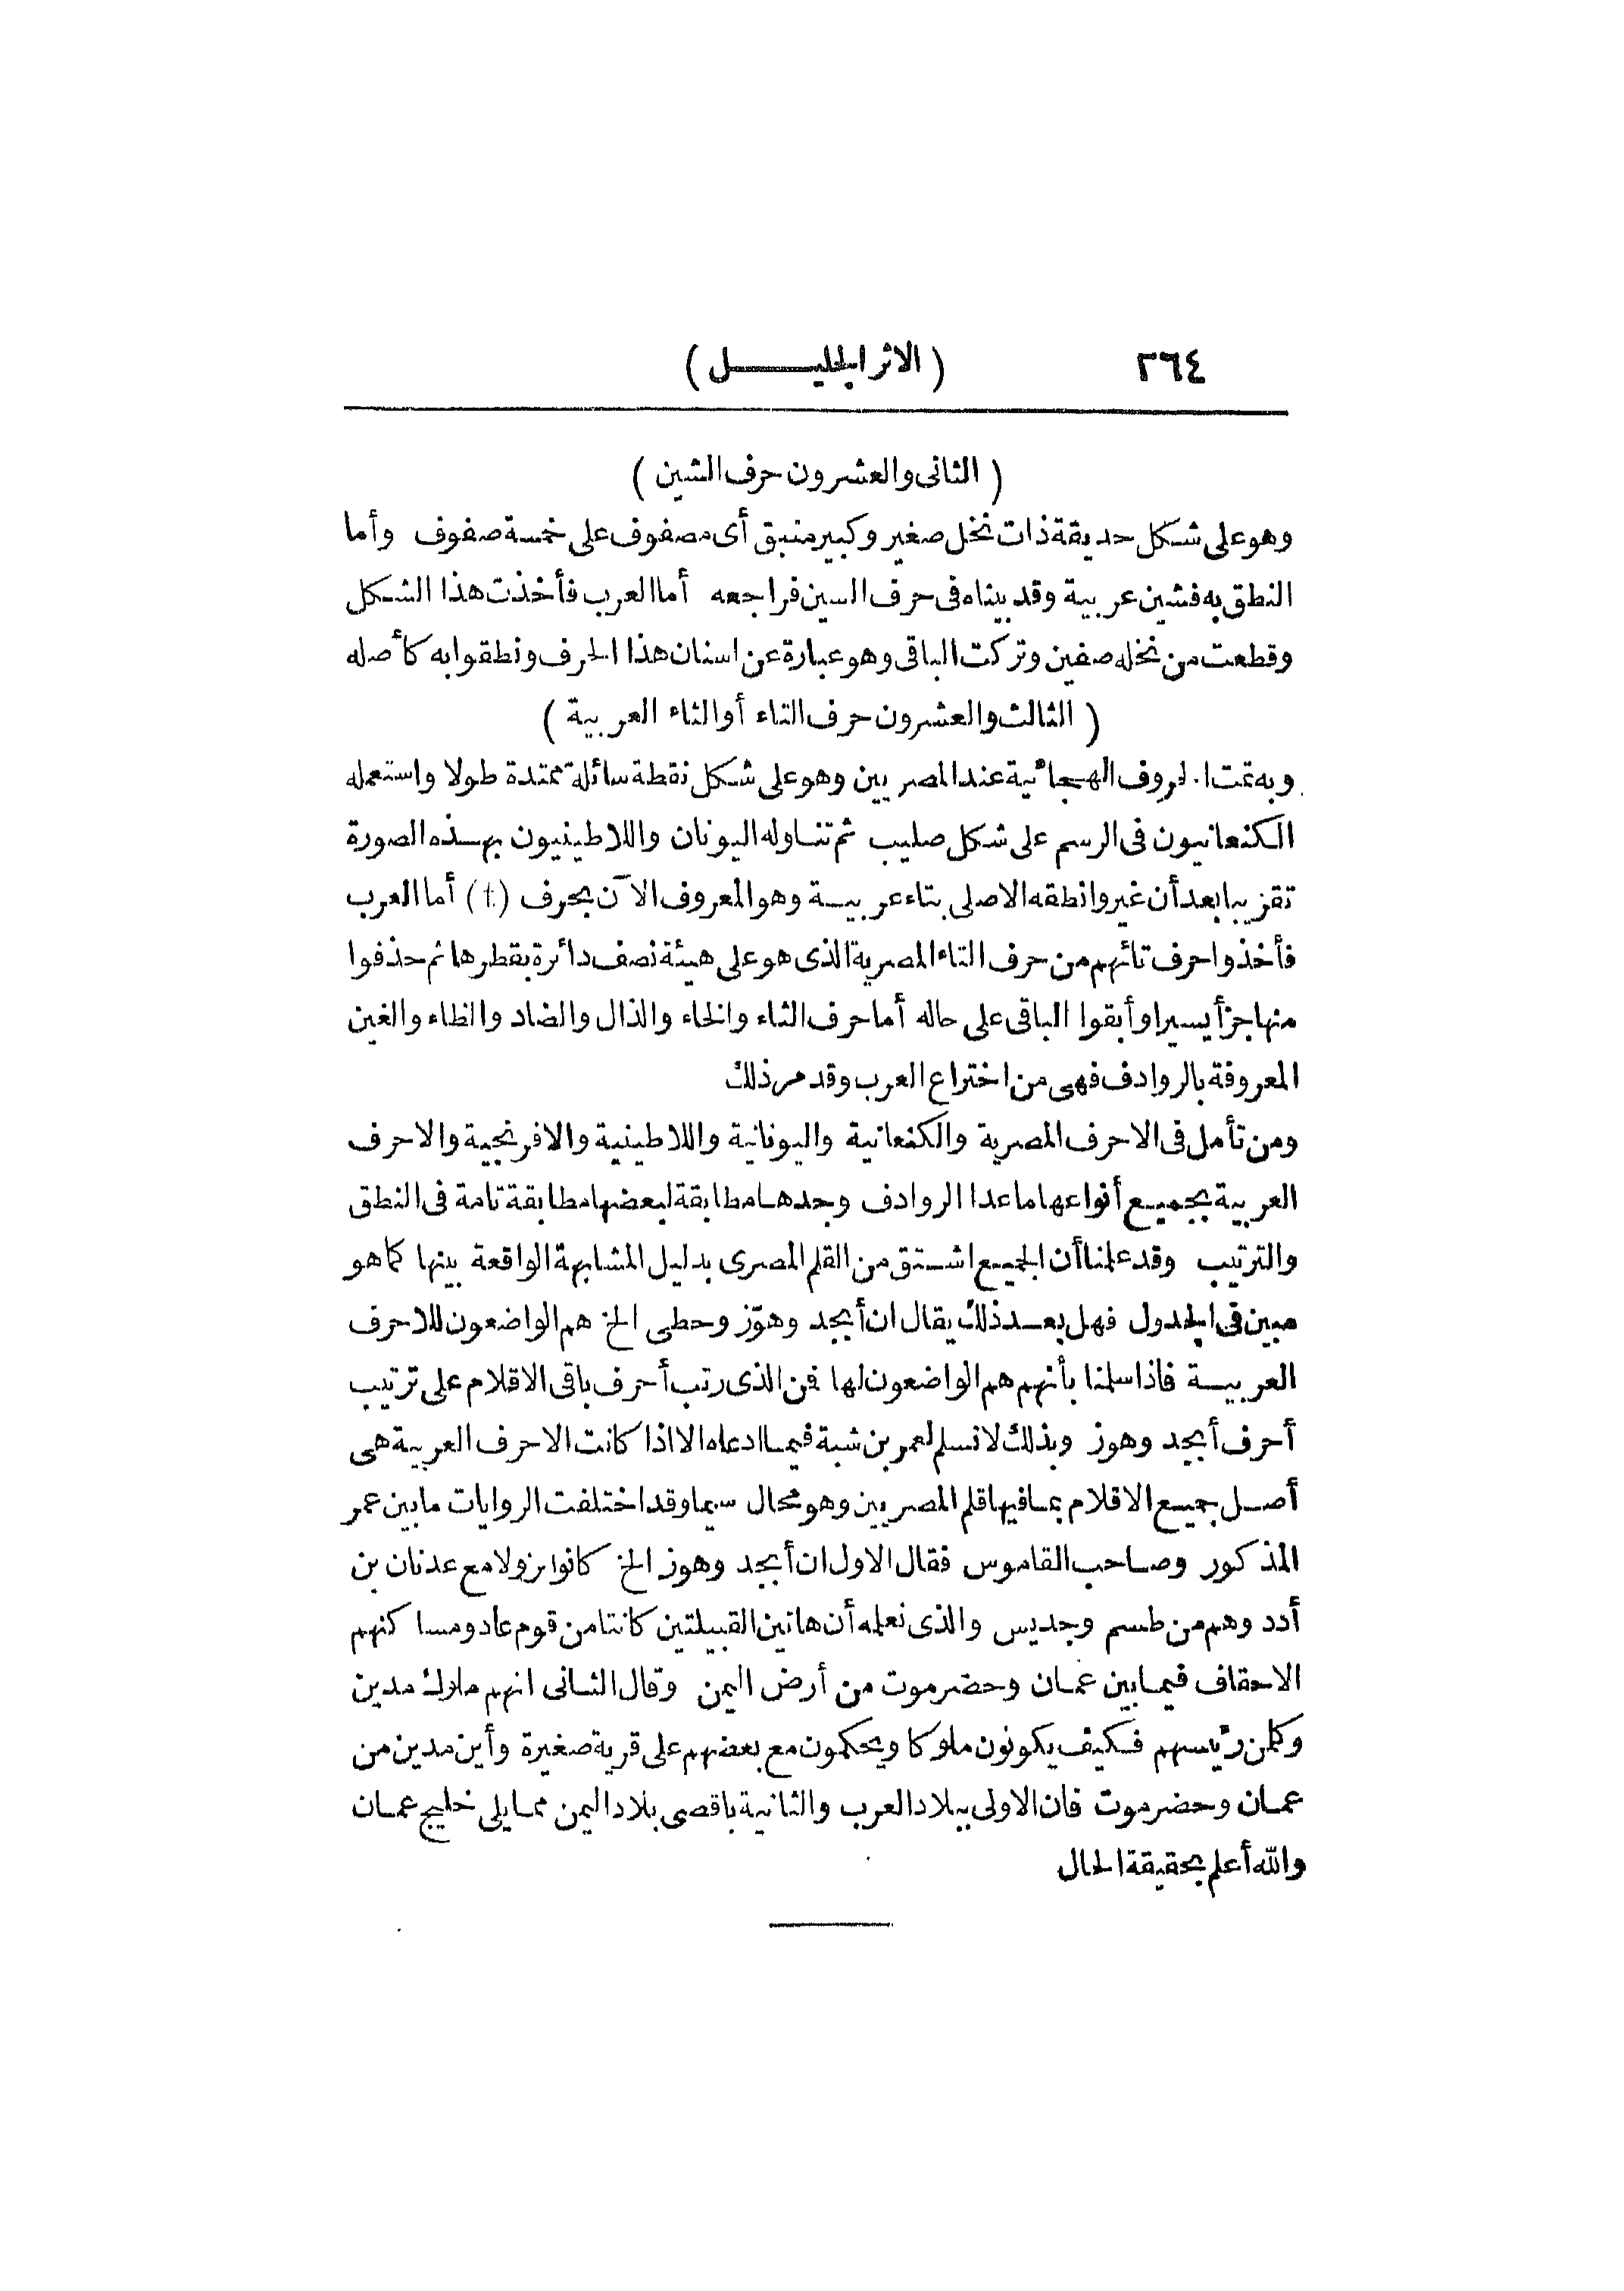 ٢٦٤ (الاثر الجليل)
(الثانى والعشرون حرف الشين)
وهو على شكل حديقة ذات نخل صغير وكبير منبق أى مصفوف على خمسة صفوف وأما
النطق به فشين عربية وقد بيناه فى حرف السين فراجعه أما العرب فأخذت هذا الشكل
وقطعت من نخله صفين وتركت الباقى وهو عبارة عن اسنان هذا الحرف ونطقوا به كأصله
(الثالث والعشرون حرف التاء أو الثاء العربية)
وبه تمت الحروف الهجائية عند المصريين وهو على شكل نقطة سائلة ممتدة طولا واستعمله
الكنعانيون فى الرسم على شكل صليب ثم تناوله اليونان واللاطينيون بهذه الصورة
تقريبا بعد أن غيروا نطقه الاصلى بتاء عربية وهو المعروف الآن بحرف (t) أما العرب
فأخذوا حرف تائهم من حرف التاء المصرية الذى هو على هيئة نصف دائرة بقطرها ثم حذفوا
منها جزأ يسيرا وأبقوا الباقى على حاله أما حرف الثاء والخاء والذال والضاد والظاء والغين
المعروفة بالروادف فهى من اختراع العرب وقد مر ذلك
ومن تأمل فى الاحرف المصرية والكنعانية واليونانية واللاطينية والافرنجية والاحرف
العربية بجميع أنواعها ما عدا الروادف وجدها مطابقة لبعضها مطابقة تامة فى النطق
والترتيب وقد علمنا أن الجميع اشتق من القلم المصرى بدليل المشابهة الواقعة بينها كما هو
مبين فى الجدول فهل بعد ذلك يقال ان أبجد وهوّز وحطى الخ هم الواضعون للاحرف
العربية فاذا سلمنا بأنهم هم الواضعون لها فمن الذى رتب أحرف باقى الاقلام على ترتيب
أحرف أبجد وهوز وبذلك لا نسلم لعمر بن شبة فيما ادعاه الا اذا كانت الاحرف العربية هى
أصل جميع الاقلام بما فيها قلم المصريين وهو محال سيما وقد اختلفت الروايات ما بين عمر
المذكور وصاحب القاموس فقال الاول ان أبجد وهوز الخ كانوا نزولا مع عدنان بن
أدد وهم من طسم وجديس والذى نعلمه أن هاتين القبيلتين كانتا من قوم عاد ومساكنهم
الاحقاف فيما بين عمان وحضرموت من أرض اليمن وقال الثانى انهم ملوك مدين
وكلمن رئيسهم فكيف يكونون ملوكا ويحكمون مع بعضهم على قرية صغيرة وأين مدين من
عمان وحضرموت فان الاولى ببلاد العرب والثانية باقصى بلاد اليمن مما يلى خليج عمان
والله أعلم بحقيقة الحال